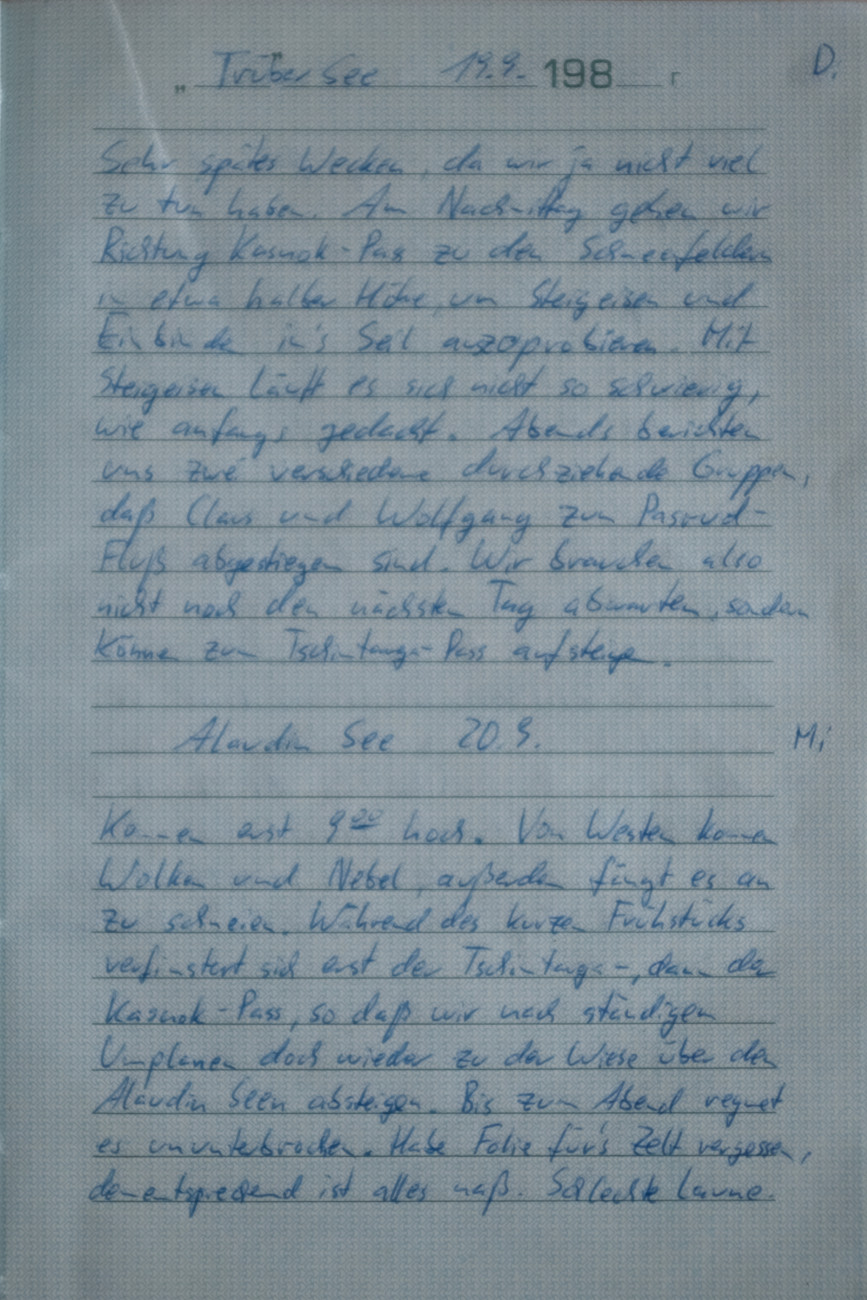 „Trüber See" 19.9. 198 г D.
Sehr spätes Wecken, da wir ja nicht viel
zu tun haben. Am Nachmittag gehen wir
Richtung Kasnok-Pass zu den Schneefeldern
in etwa halber Höhe, um Steigeisen und
Einbinden in's Seil auszuprobieren. Mit
Steigeisen läuft es sich nicht so schwierig,
wie anfangs gedacht. Abends berichten
uns zwei verschiedene durchziehende Gruppen,
daß Claus und Wolfgang zum Pasrud-
Fluß abgestiegen sind. Wir brauchen also
nicht noch den nächsten Tag abwarten, sondern
können zum Tschimtarga-Pass aufsteigen.
Alaudin See 20.9. Mi
Kommen erst 9⁰⁰ hoch. Von Westen kommen
Wolken und Nebel, außerdem fängt es an
zu schneien. Während des kurzen Frühstücks
verfinstert sich erst der Tschimtarga-, dann der
Kasnok-Pass, so daß wir nach ständigem
Umplanen doch wieder zu der Wiese über den
Alaudin Seen absteigen. Bis zum Abend regnet
es ununterbrochen. Habe Folie für's Zelt vergessen,
dementsprechend ist alles naß. Schlechte Laune.